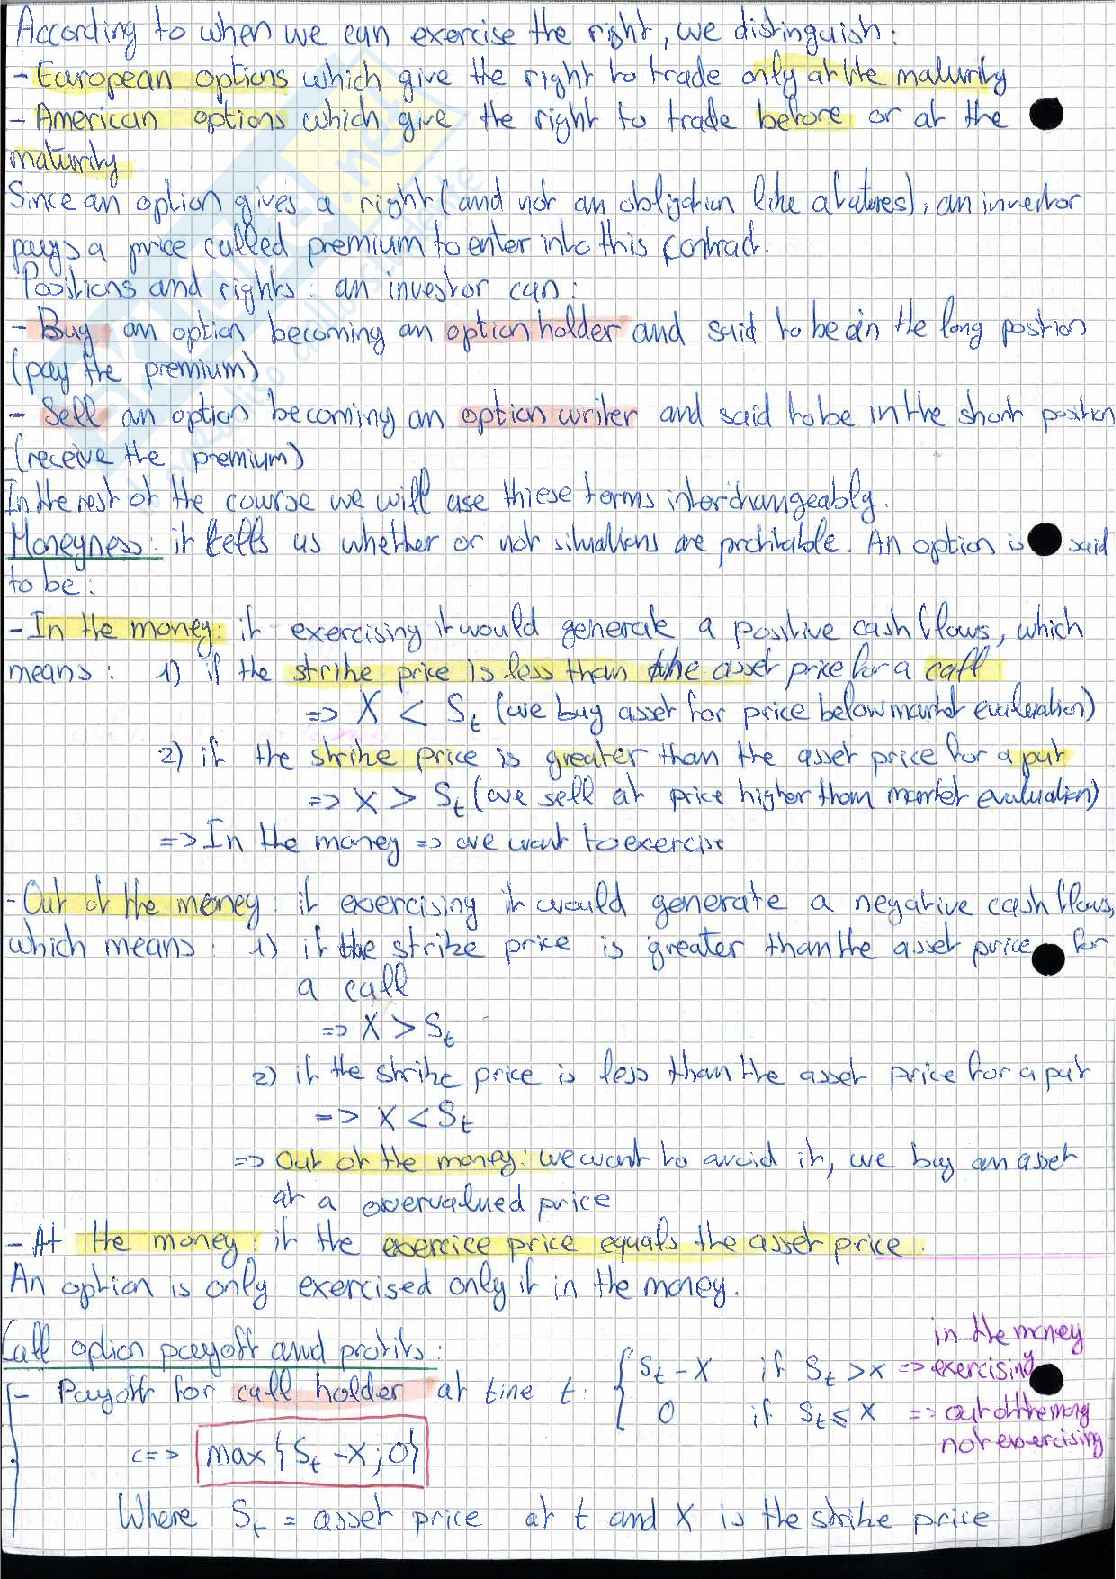 According to when we can exercise the right, we distinguish:
- European options which give the right to trade only at the maturity
- American options which give the right to trade before or at the
maturity
Since an option gives a right (and not an obligation like a futures), an investor
pays a price called premium to enter into this contract.
Positions and rights: an investor can:
- Buy an option becoming an option holder and said to be in the long position
(pay the premium)
- Sell an option becoming an option writer and said to be in the short position
(receive the premium)
In the rest of the course we will use thiese terms interchangeably.
Moneyness: it tells us whether or not situations are profitable. An option is said
to be:
- In the money: if exercising it would generate a positive cash flows, which
means: 1) if the strike price is less than the asset price for a call
=> X < St (we buy asset for price below market evaluation)
2) if the strike price is greater than the asset price for a put
=> X > St (we sell at price higher than market evaluation)
=> In the money => we want to exercise
- Out of the money: if exercising it would generate a negative cash flows,
which means: 1) if the strike price is greater than the asset price for
a call
=> X > St
2) if the strike price is less than the asset price for a put
=> X < St
=> Out of the money: we want to avoid it, we buy an asset
at a overvalued price
- At the money: if the exercice price equals the asset price.
An option is only exercised only if in the money.
Call option payoff and profits:
in the money
- Payoff for call holder at time t: { St - X if St > X => exercising
0 if St ≤ X => out of the money
not exercising
<=> max{St - X; 0}
Where St = asset price at t and X is the strike price